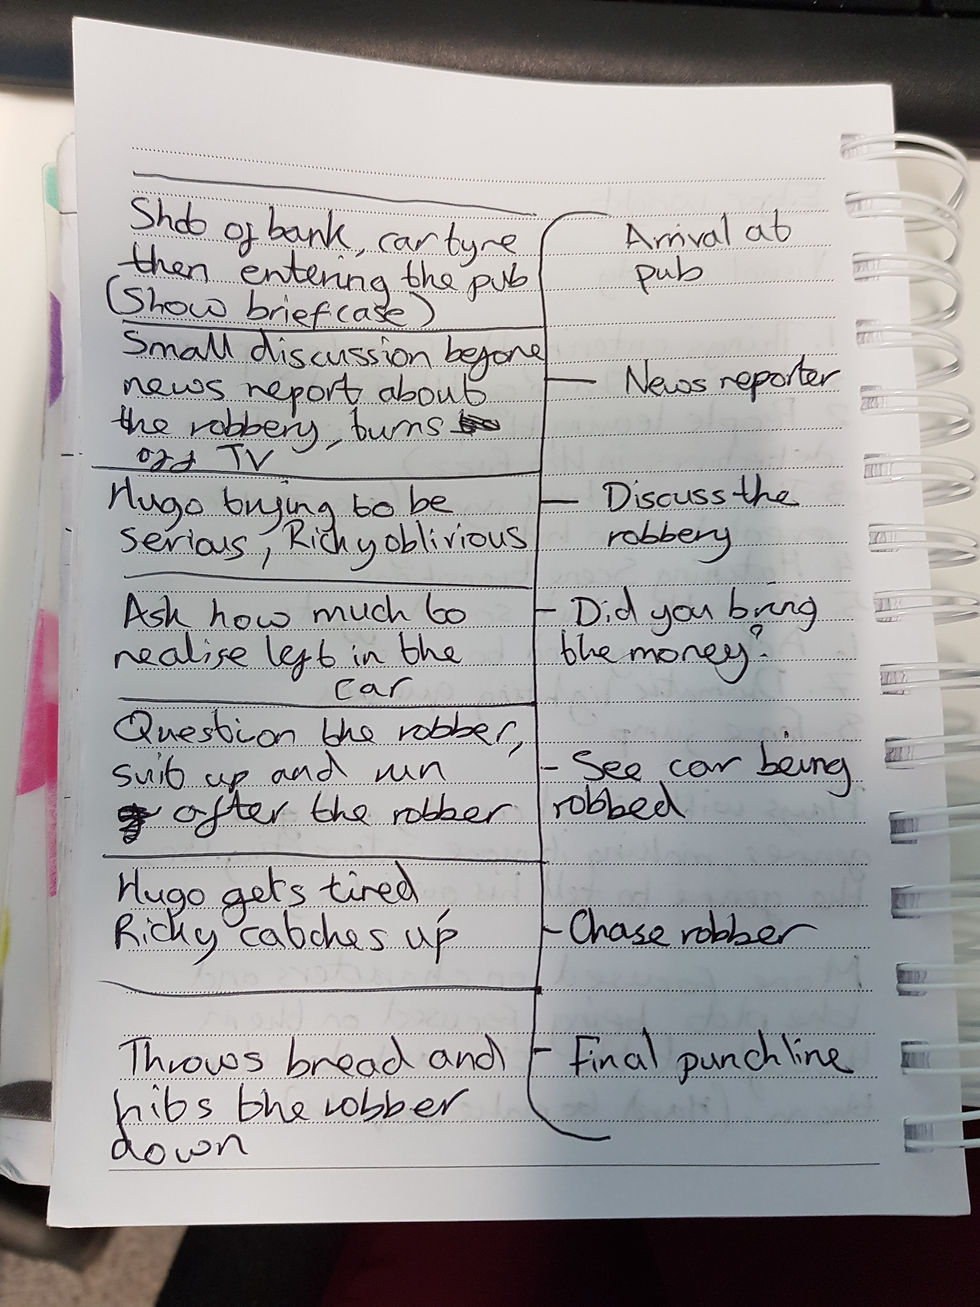 Shot of bank, car tyre
then entering the pub
(Show briefcase)
Arrival at
pub
Small discussion before
news report about
the robbery, turns
off TV
News reporter
Hugo trying to be
serious, Ricky oblivious
Discuss the
robbery
Ask how much to
realise left in the
car
Did you bring
the money?
Question the robber,
suit up and run
after the robber
See car being
robbed
Hugo gets tired
Ricky catches up
Chase robber
Throws bread and
hits the robber
down
Final punchline